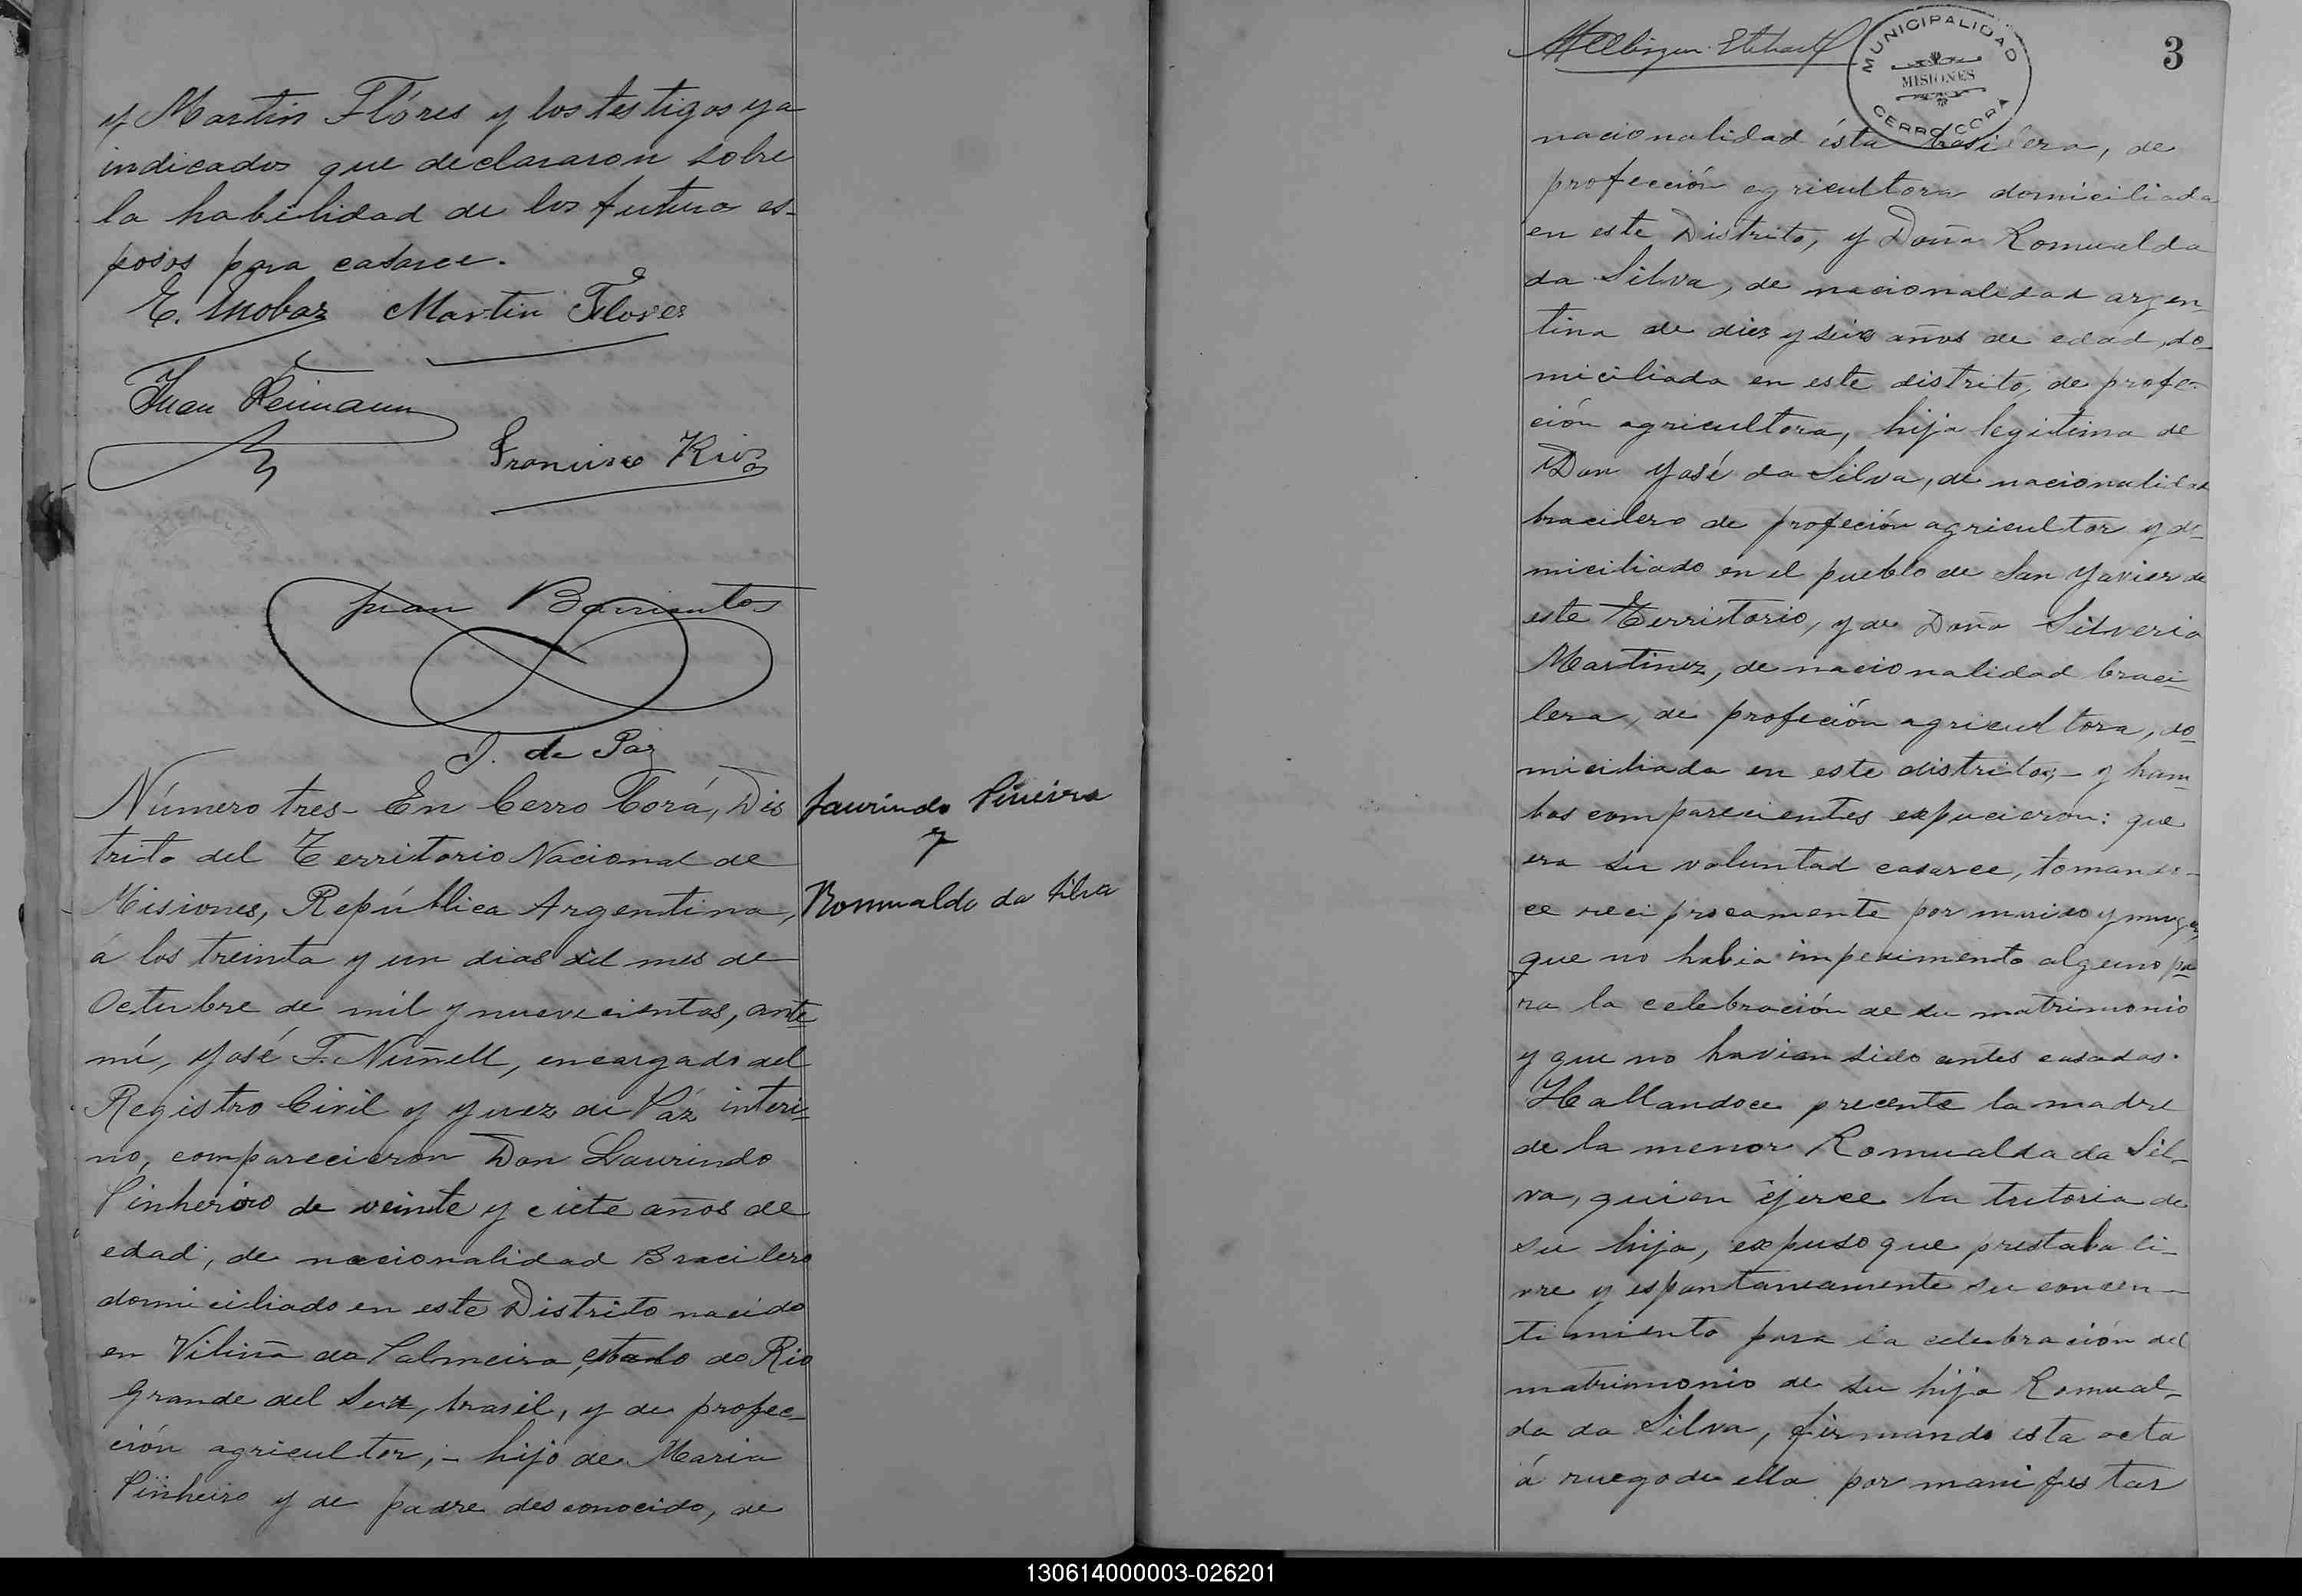 y Martin Flóres y los testigos ya
indicados que declararon sobre
la habilidad de los futuros es-
posos para casarce.
E. Mobaz Martin Flores
Juan Reimann
Francisco Rios
Juan Barrientos
J. de Paz
Número tres- En Cerro Corá, Dis
trito del Territorio Nacional de
Misiones, República Argentina,
á los treinta y un dias del mes de
Octubre de mil y nuevecientos, ante
mí, José F. Nuñell, encargado del
Registro Civil y Juez de Páz interi-
no, comparecieron Don Laurindo
Pinheiro de veinte y ciete años de
edad, de nacionalidad Bracilero
domiciliado en este Distrito nacido
en Viliña da Palmeira, estado do Rio
Grande del Sud, brasil, y de profec-
ción agricultor,- hijo de Maria
Pinheiro y de padre desconocido, de
Laurindo Piñeiro
y
Romualda da Silva
3
MUNICIPALIDAD
MISIONES
CERRO CORA
nacionalidad ésta brasilera, de
profección agricultora domiciliada
en este Distrito, y Doña Romualda
da Silva, de nacionalidad argen-
tina de diez y seis años de edad, do-
miciliada en este distrito, de profe-
ción agricultora, hija legitima de
Don José da Silva, de nacionalidad
bracilero de profeción agricultor y do-
miciliado en el pueblo de San Javier de
este Territorio, y de Doña Silveria
Martinez, de nacionalidad braci-
lera, de profeción agricultora, do-
miciliada en este distrito;- y ham-
bos comparecientes expucieron: que
era su voluntad casarce, tomando-
ce reciprocamente por marido y muger,
que no habia impedimento alguno pa-
ra la celebración de su matrimonio
y que no havian sido antes casados.
Hallandoce precente la madre
de la menor Romualda da Sil-
va, quien ejerce la tutoria de
su hija, expuso que prestaba li-
vre y espontaneamente su concen-
timiento para la celebración del
matrimonio de su hija Romual-
da da Silva, firmando esta acta
á ruego de ella por manifestar
130614000003-026201